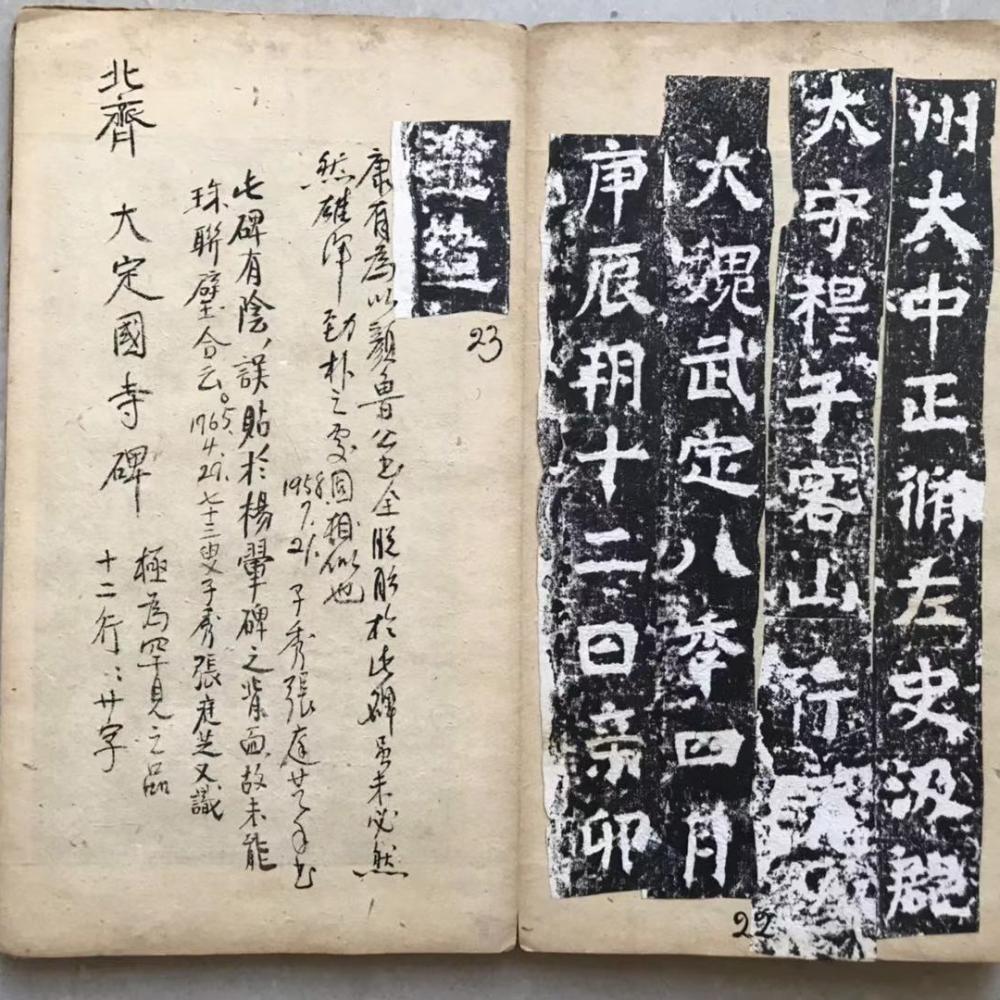 州大中正脩左史汲郡
太守穆子容山行之文
大魏武定八秊四月
庚辰朔十二日辛卯
22
建造
23
康有為以顏魯公书全脫胎於此碑虽未必然
然雄渾勁朴之處固相似也
1958.7.21. 子秀張庭芝书
此碑有陰,誤貼於楊翬碑之背面故未能
珠聯璧合云。1965.4.29.七十三叟子秀張庭芝又識
北齊 大定國寺碑
極為罕見之品
十二行:廿字